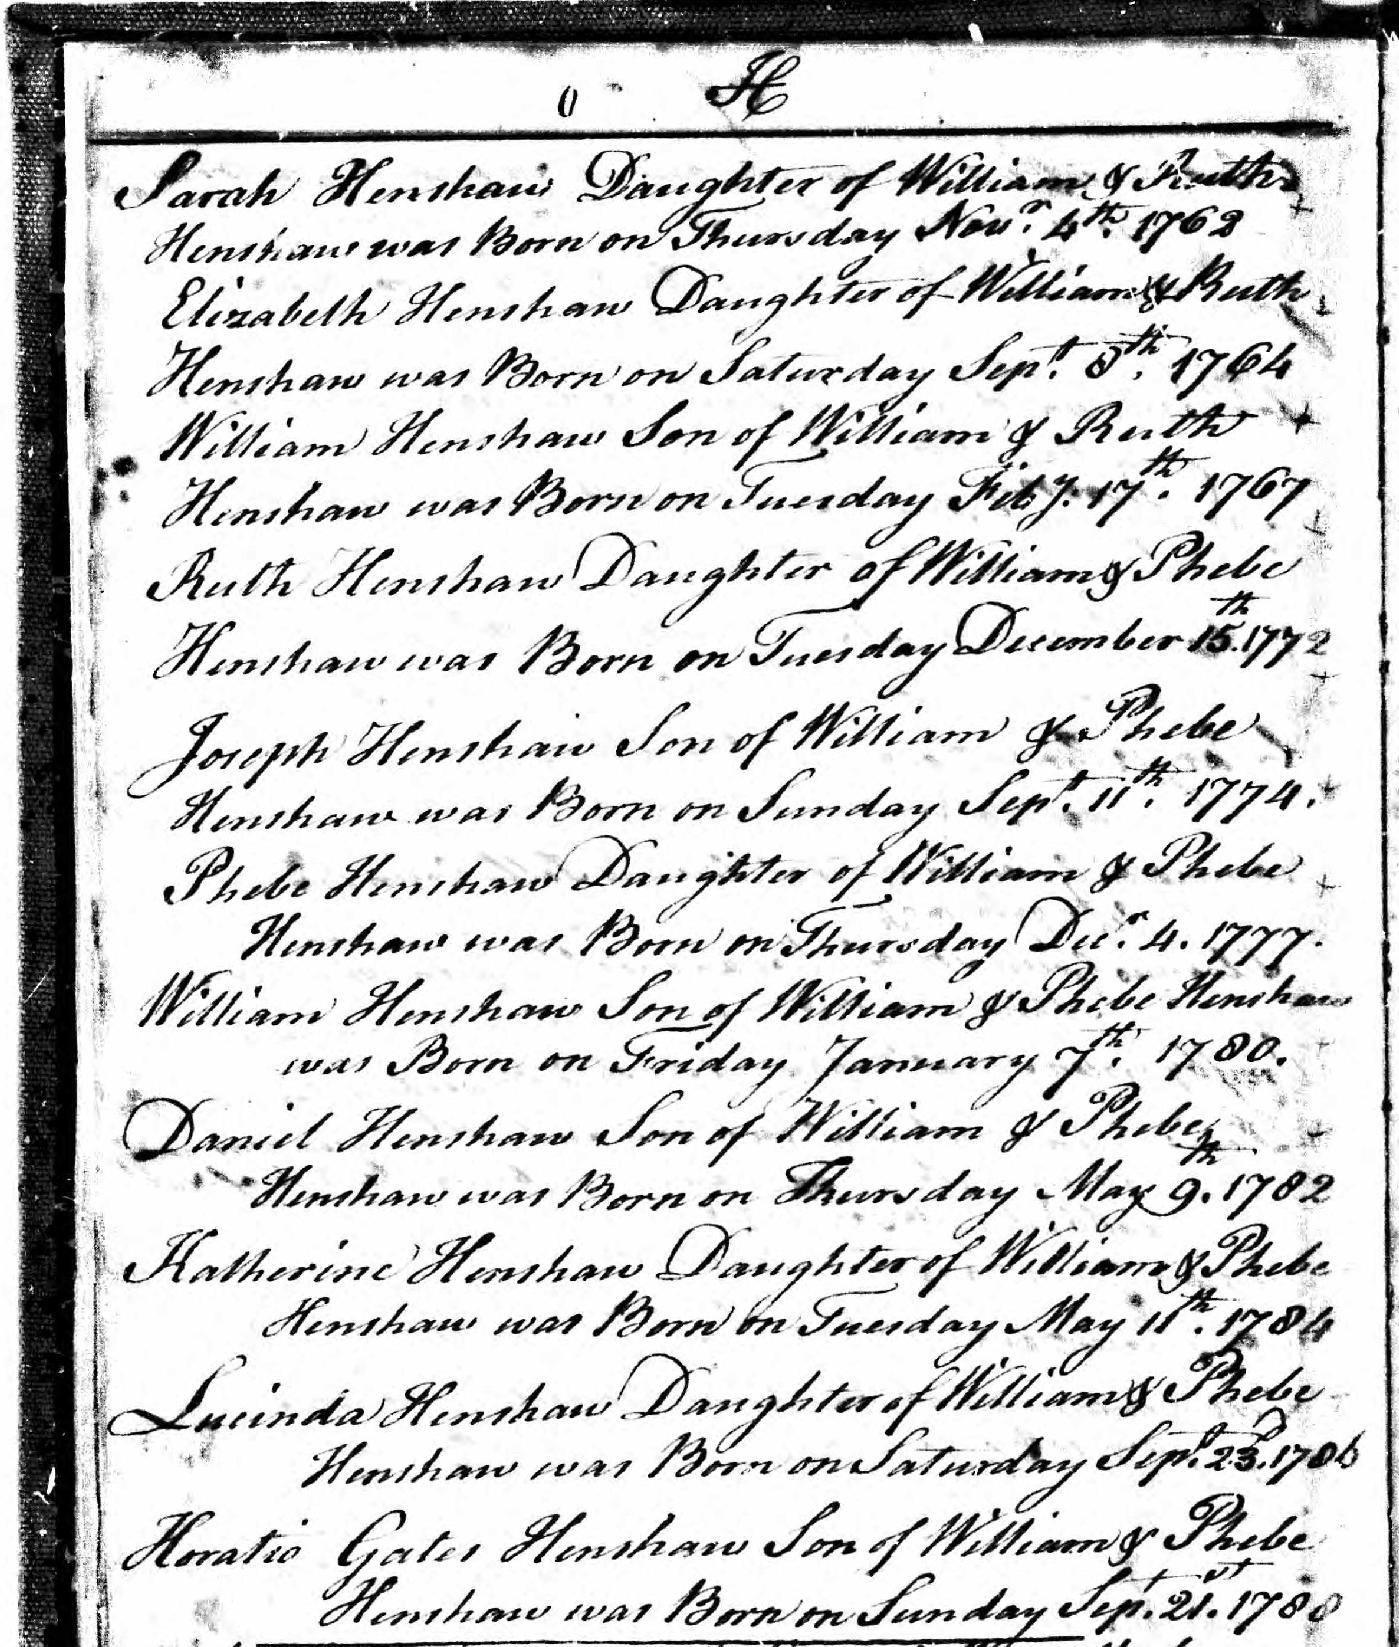 0 H
Sarah Henshaw Daughter of William & Ruth
Henshaw was Born on Thursday Novr. 4th. 1762
Elizabeth Henshaw Daughter of William & Ruth
Henshaw was Born on Saturday Sept. 8th. 1764
William Henshaw Son of William & Ruth
Henshaw was Born on Tuesday Feby. 17th. 1767
Ruth Henshaw Daughter of William & Phebe
Henshaw was Born on Tuesday December 15th. 1772
Joseph Henshaw Son of William & Phebe
Henshaw was Born on Sunday Sept. 11th. 1774.
Phebe Henshaw Daughter of William & Phebe
Henshaw was Born on Thursday Decr. 4. 1777.
William Henshaw Son of William & Phebe Henshaw
was Born on Friday January 7th. 1780.
Daniel Henshaw Son of William & Phebe
Henshaw was Born on Thursday May 9th. 1782
Katherine Henshaw Daughter of William & Phebe
Henshaw was Born on Tuesday May 11th. 1784
Lucinda Henshaw Daughter of William & Phebe
Henshaw was Born on Saturday Sept. 23d. 1786
Horatio Gates Henshaw Son of William & Phebe
Henshaw was Born on Sunday Sept. 21st. 1788